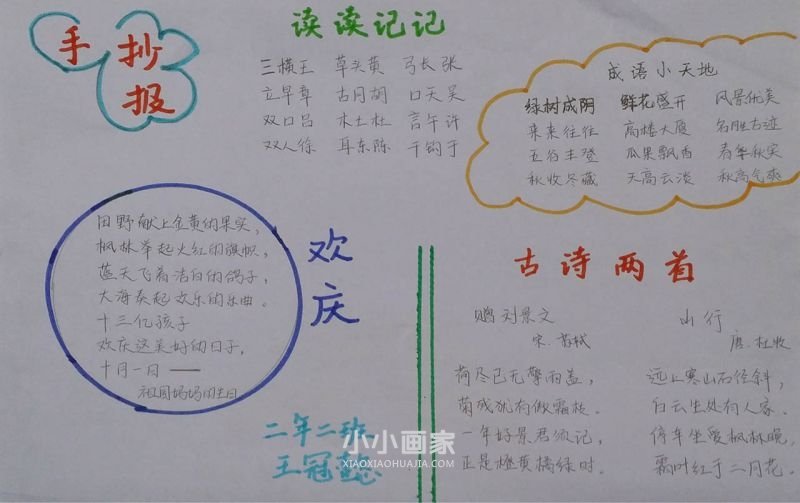 手抄报
读读记记
三横王 草头黄 弓长张
立早章 古月胡 口天吴
双口吕 木土杜 言午许
双人徐 耳东陈 千钩于
成语小天地
绿树成阴 鲜花盛开 风景优美
来来往往 高楼大厦 名胜古迹
五谷丰登 瓜果飘香 春华秋实
秋收冬藏 天高云淡 秋高气爽
田野献上金黄的果实，
枫林举起火红的旗帜，
蓝天飞着洁白的鸽子，
大海奏起欢乐的乐曲。
十三亿孩子
欢庆这美好的日子，
十月一日——
祖国妈妈的生日
欢庆
古诗两首
赠刘景文
宋.苏轼
荷尽已无擎雨盖，
菊残犹有傲霜枝。
一年好景君须记，
正是橙黄橘绿时。
山行
唐.杜牧
远上寒山石径斜，
白云生处有人家。
停车坐爱枫林晚，
霜叶红于二月花。
二年二班
王冠懿
小小画家
XIAOXIAOHUAJIA.COM